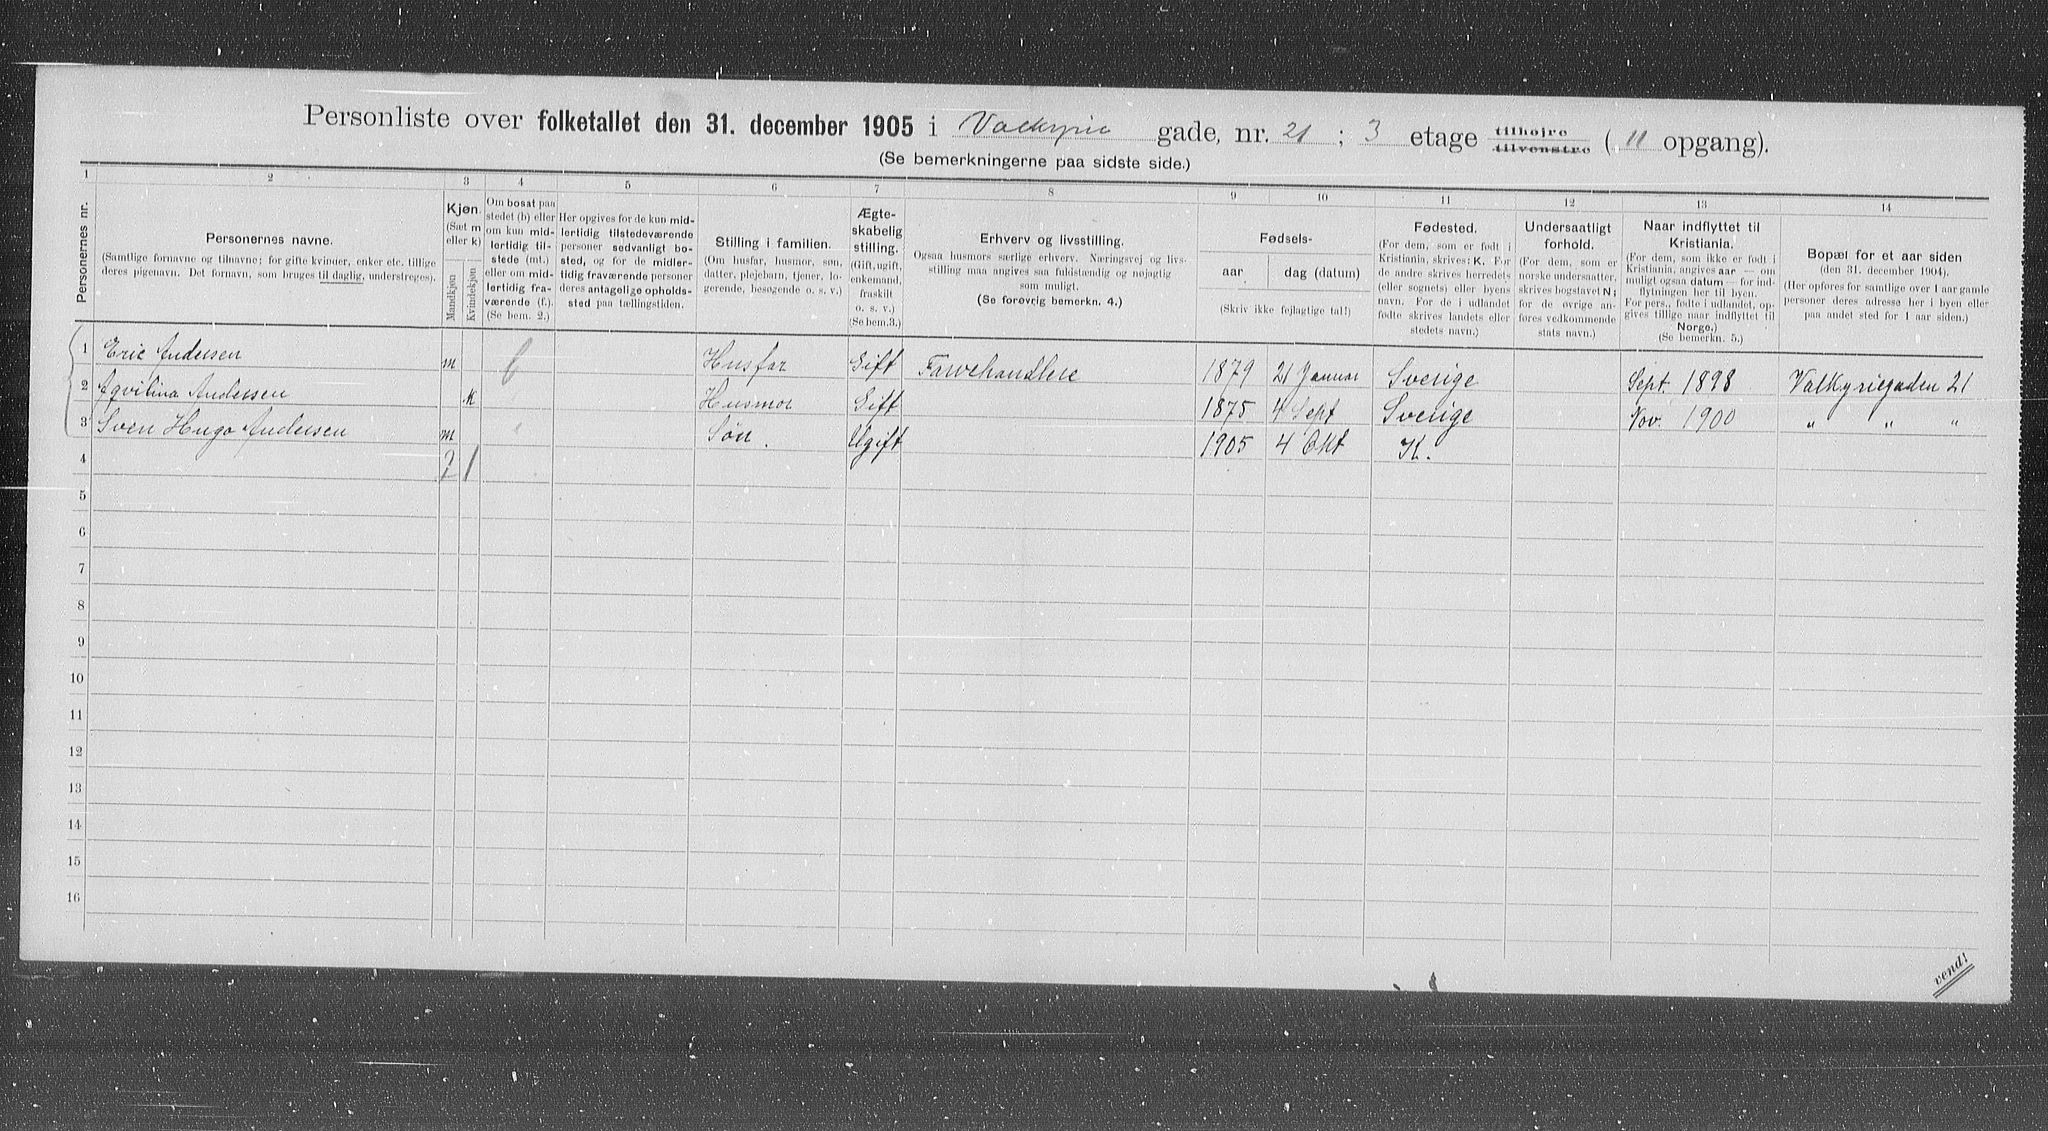 Personliste over folketallet den 31. december 1905 i Valkyrie gade, nr. 21 ; 3 etage tilhøjre tilvenstre ( 11 opgang).
(Se bemerkningerne paa sidste side.)
1 2 3 4 5 6 7 8 9 10 11 12 13 14
Personernes nr.
Personernes navne.
(Samtlige fornavne og tilnavne; for gifte kvinder, enker etc. tillige
deres pigenavn. Det fornavn, som bruges til daglig, understreges).
Kjøn.
(Sæt m
eller k)
Mandkjøn
Kvindekjøn
Om bosat paa
stedet (b) eller
om kun mid-
lertidig til-
stede (mt.)
eller om mid-
lertidig fra-
værende (f.).
(Se bem. 2.)
Her opgives for de kun mid-
lertidig tilstedeværende
personer sedvanligt bo-
sted, og for de midler-
tidig fraværende personer
deres antagelige opholds-
sted paa tællingstiden.
Stilling i familien.
(Om husfar, husmor, søn,
datter, plejebarn, tjener, lo-
gerende, besøgende o. s. v.)
Ægte-
skabelig
stilling.
(Gift, ugift,
enkemand,
fraskilt
o. s. v.)
(Se bem.3.)
Erhverv og livsstilling.
Ogsaa husmors særlige erhverv. Næringsvej og livs-
stilling maa angives saa fuldstændig og nøjagtig
som muligt.
(Se forøvrig bemerkn. 4.)
Fødsels-
aar
dag (datum)
(Skriv ikke fejlagtige tal!)
Fødested.
(For dem, som er født i
Kristiania, skrives: K. For
de andre skrives herredets
(eller sognets) eller byens
navn. For de i udlandet
fødte skrives landets eller
stedets navn.)
Undersaatligt
forhold.
(For dem, som er
norske undersaatter,
skrives bogstavet N;
for de øvrige an-
føres vedkommende
stats navn.)
Naar indflyttet til
Kristiania.
(For dem, som ikke er født i
Kristiania, angives aar — om
muligt ogsaa datum — for ind-
flytningen her til byen.
For pers., fødte i udlandet, op-
gives tillige naar indflyttet til
Norge.)
(Se bemerkn. 5.)
Bopæl for et aar siden
(den 31. december 1904).
(Her opføres for samtlige over 1 aar gamle
personer deres adresse her i byen eller
paa andet sted for 1 aar siden.)
1 Eric Andersen m b Husfar Gift Farvehandlere 1879 21 Januar Sverige Sept. 1898 Valkyriegaden 21
2 Aqvilina Andersen k Husmor Gift 1875 4 Sept Sverige Nov. 1900 " " "
3 Sven Hugo Andersen m Søn. Ugift 1905 4 Okt K.
4 2 1
5
6
7
8
9
10
11
12
13
14
15
16
vend!